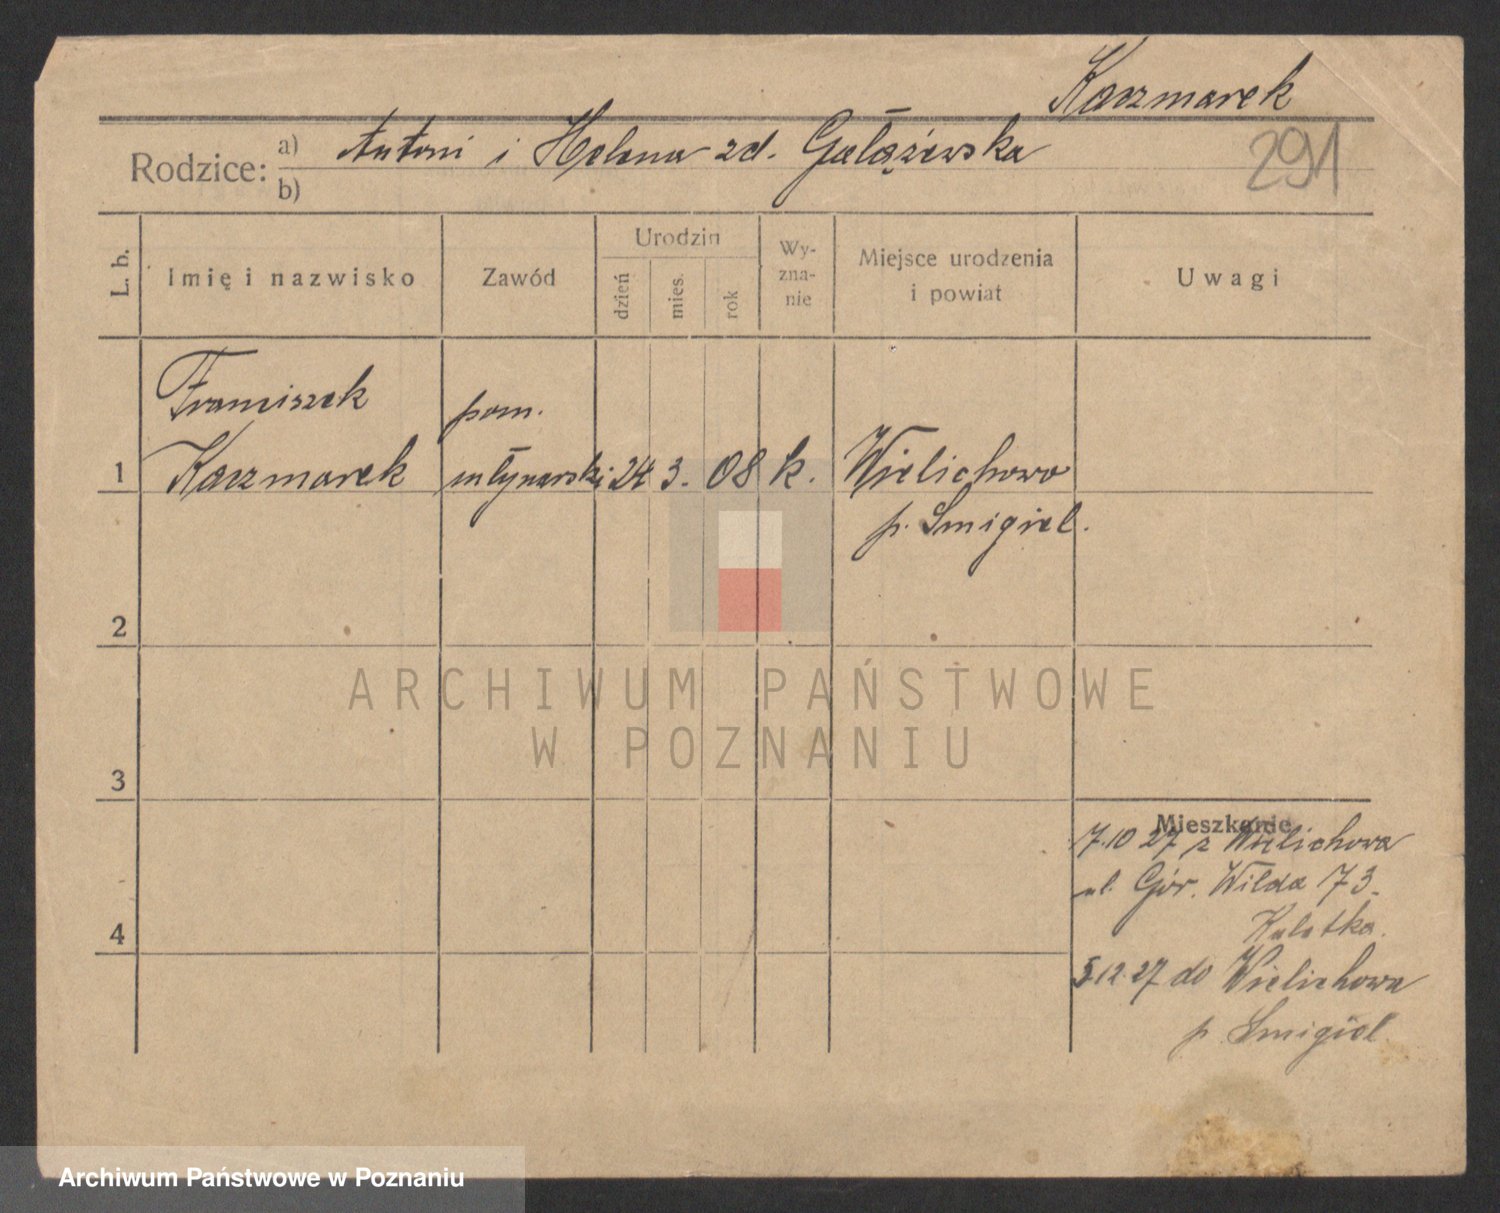 Kaczmarek
291
Rodzice: a) Antoni i Helena zd. Gałążewska
b)
L. b. Imię i nazwisko Zawód Urodzin dzień mies. rok Wyzna-nie Miejsce urodzenia i powiat Uwagi
Franciszek pom.
1 Kaczmarek młynarski 24 3. 08 k. Wielichowo
p. Smigiel.
2
3
4
Mieszkanie
7.10 27 z Wielichowa
ul. Gór. Wilda 73.
5 12.27 do Wielichowa
p. Smigiel
ARCHIWUM PAŃSTWOWE
W POZNANIU
Archiwum Państwowe w Poznaniu